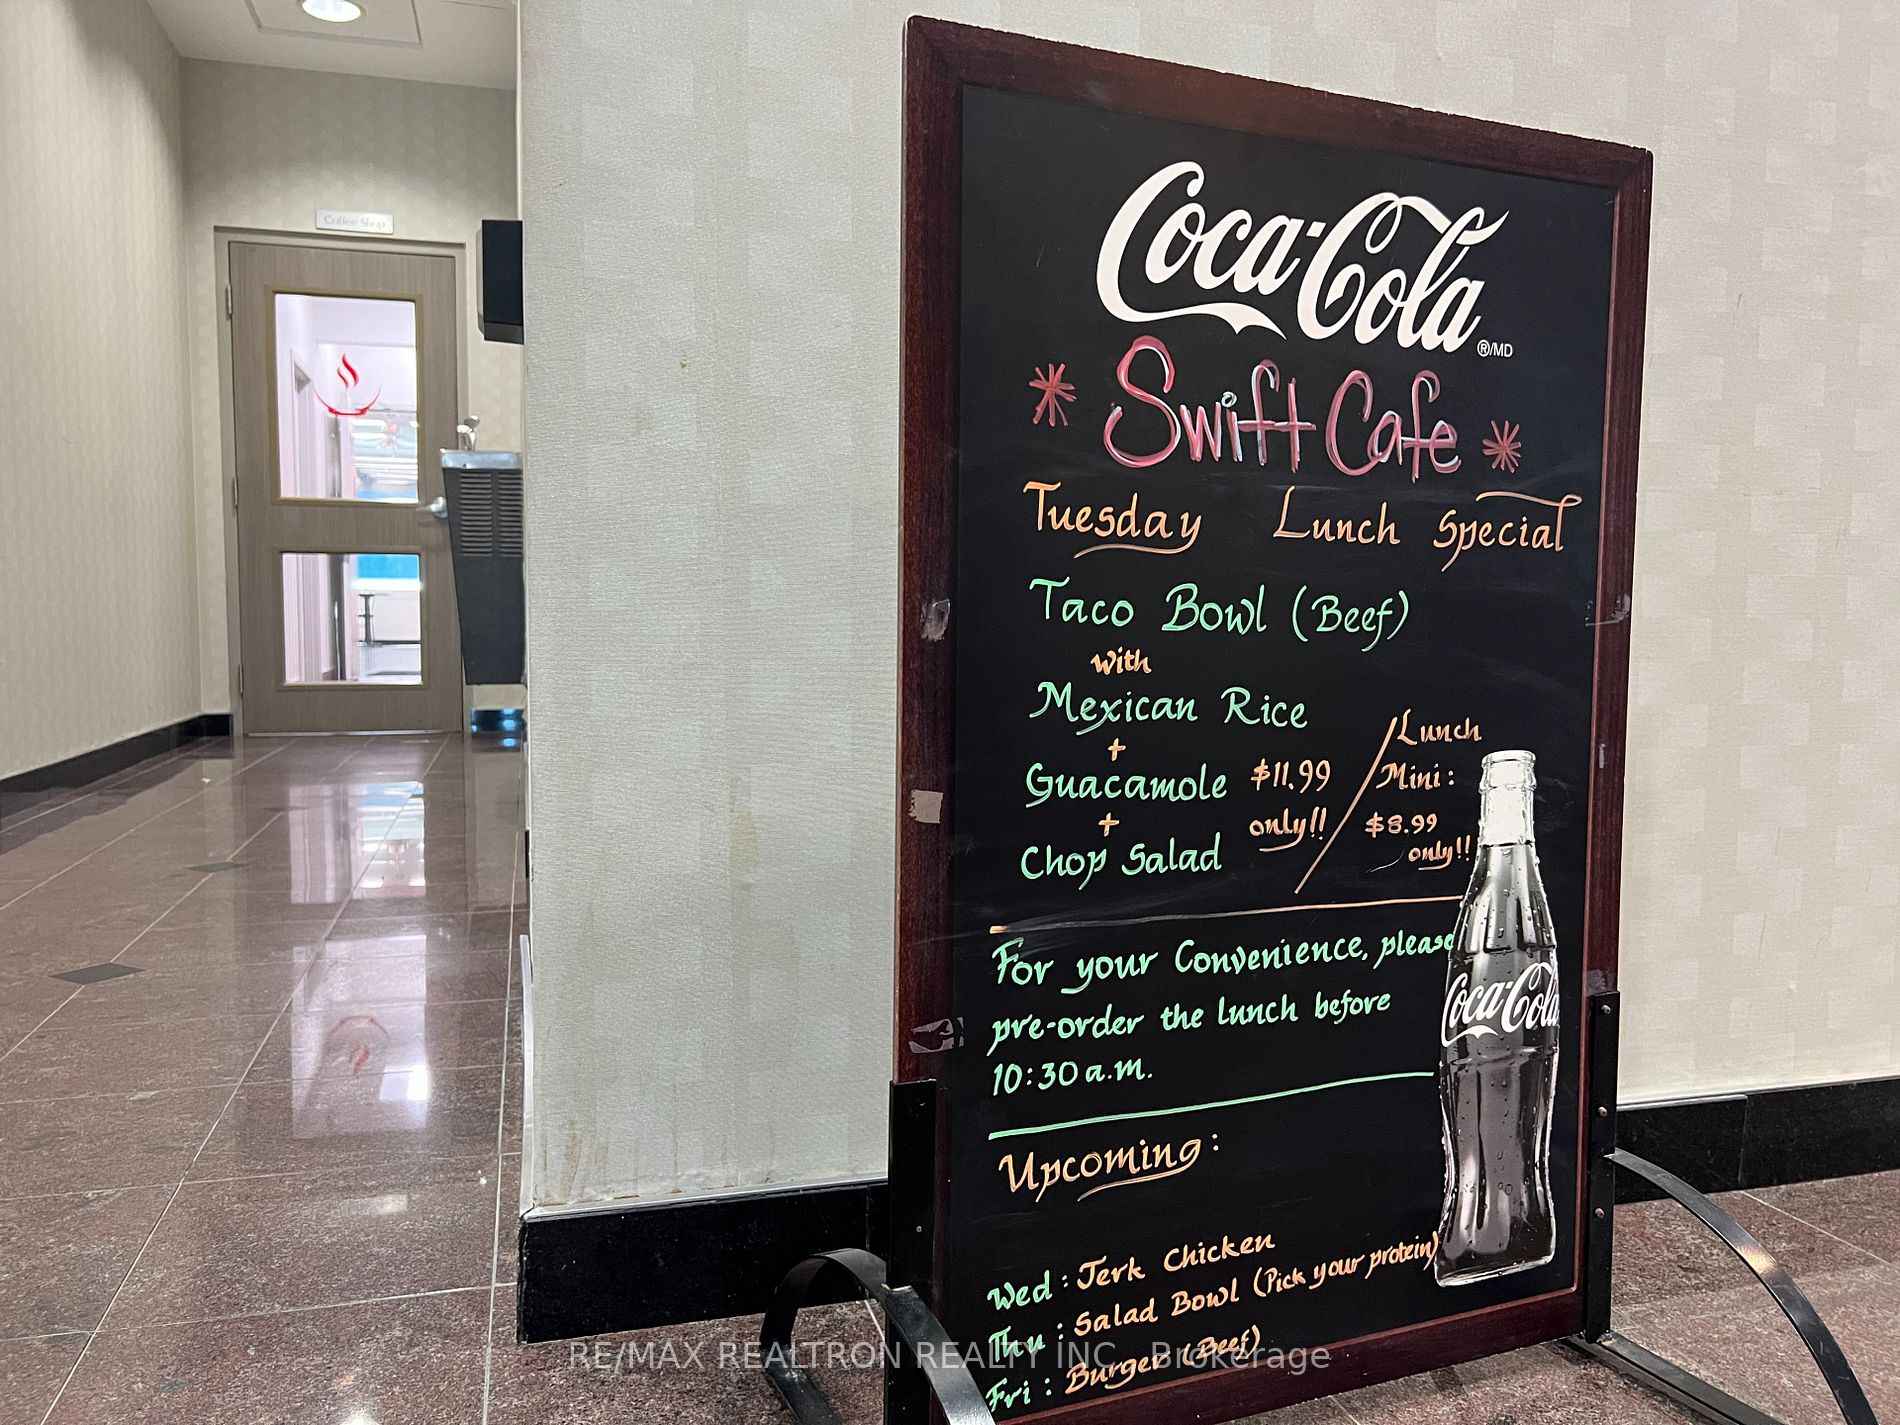 Coffee Shop
Coca-Cola
®/MD
Swift Cafe
Tuesday Lunch Special
Taco Bowl (Beef)
with
Mexican Rice
+
Guacamole
+
Chop Salad
$11.99
only!!
Lunch
Mini:
$8.99
only!!
For your Convenience, please
pre-order the lunch before
10:30 a.m.
Coca-Cola
Upcoming:
Wed: Jerk Chicken
Thu: Salad Bowl (Pick your protein)
Fri: Burger (Beef)
RE/MAX REALTRON REALTY INC., Brokerage